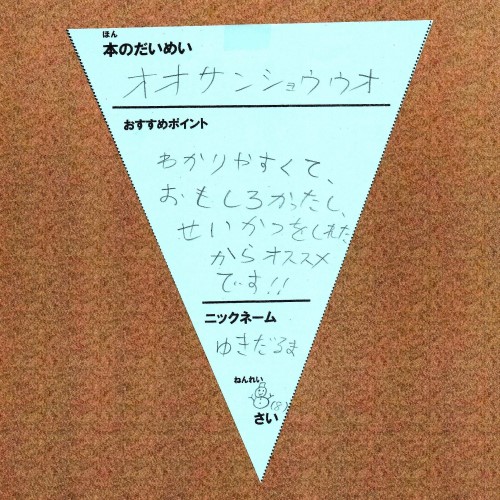 ほん
本のだいめい
オオサンショウウオ
おすすめポイント
わかりやすくて、
おもしろかったし、
せいかつをしれた
からオススメ
です!!
ニックネーム
ゆきだるま
ねんれい
(8)
さい